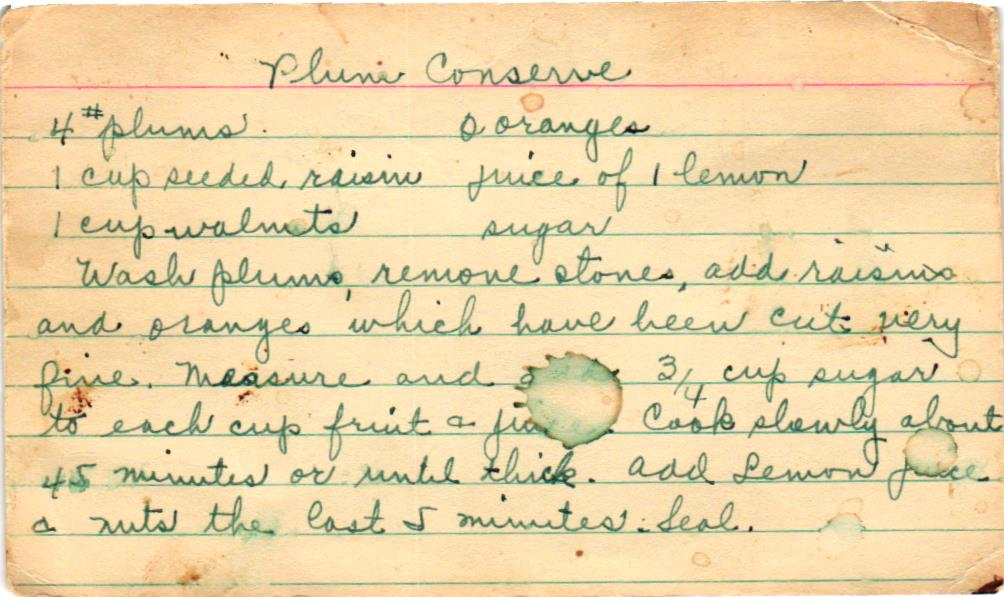 Plum Conserve
4 # plums. oranges
1 cup seeded raisin juice of 1 lemon
1 cup walnuts sugar
Wash plums, remove stones, add raisins
and oranges which have been cut very
fine. Measure and 3/4 cup sugar
to each cup fruit & Cook slowly about
45 minutes or until thick. add Lemon juice
& nuts the last 5 minutes. Seal.